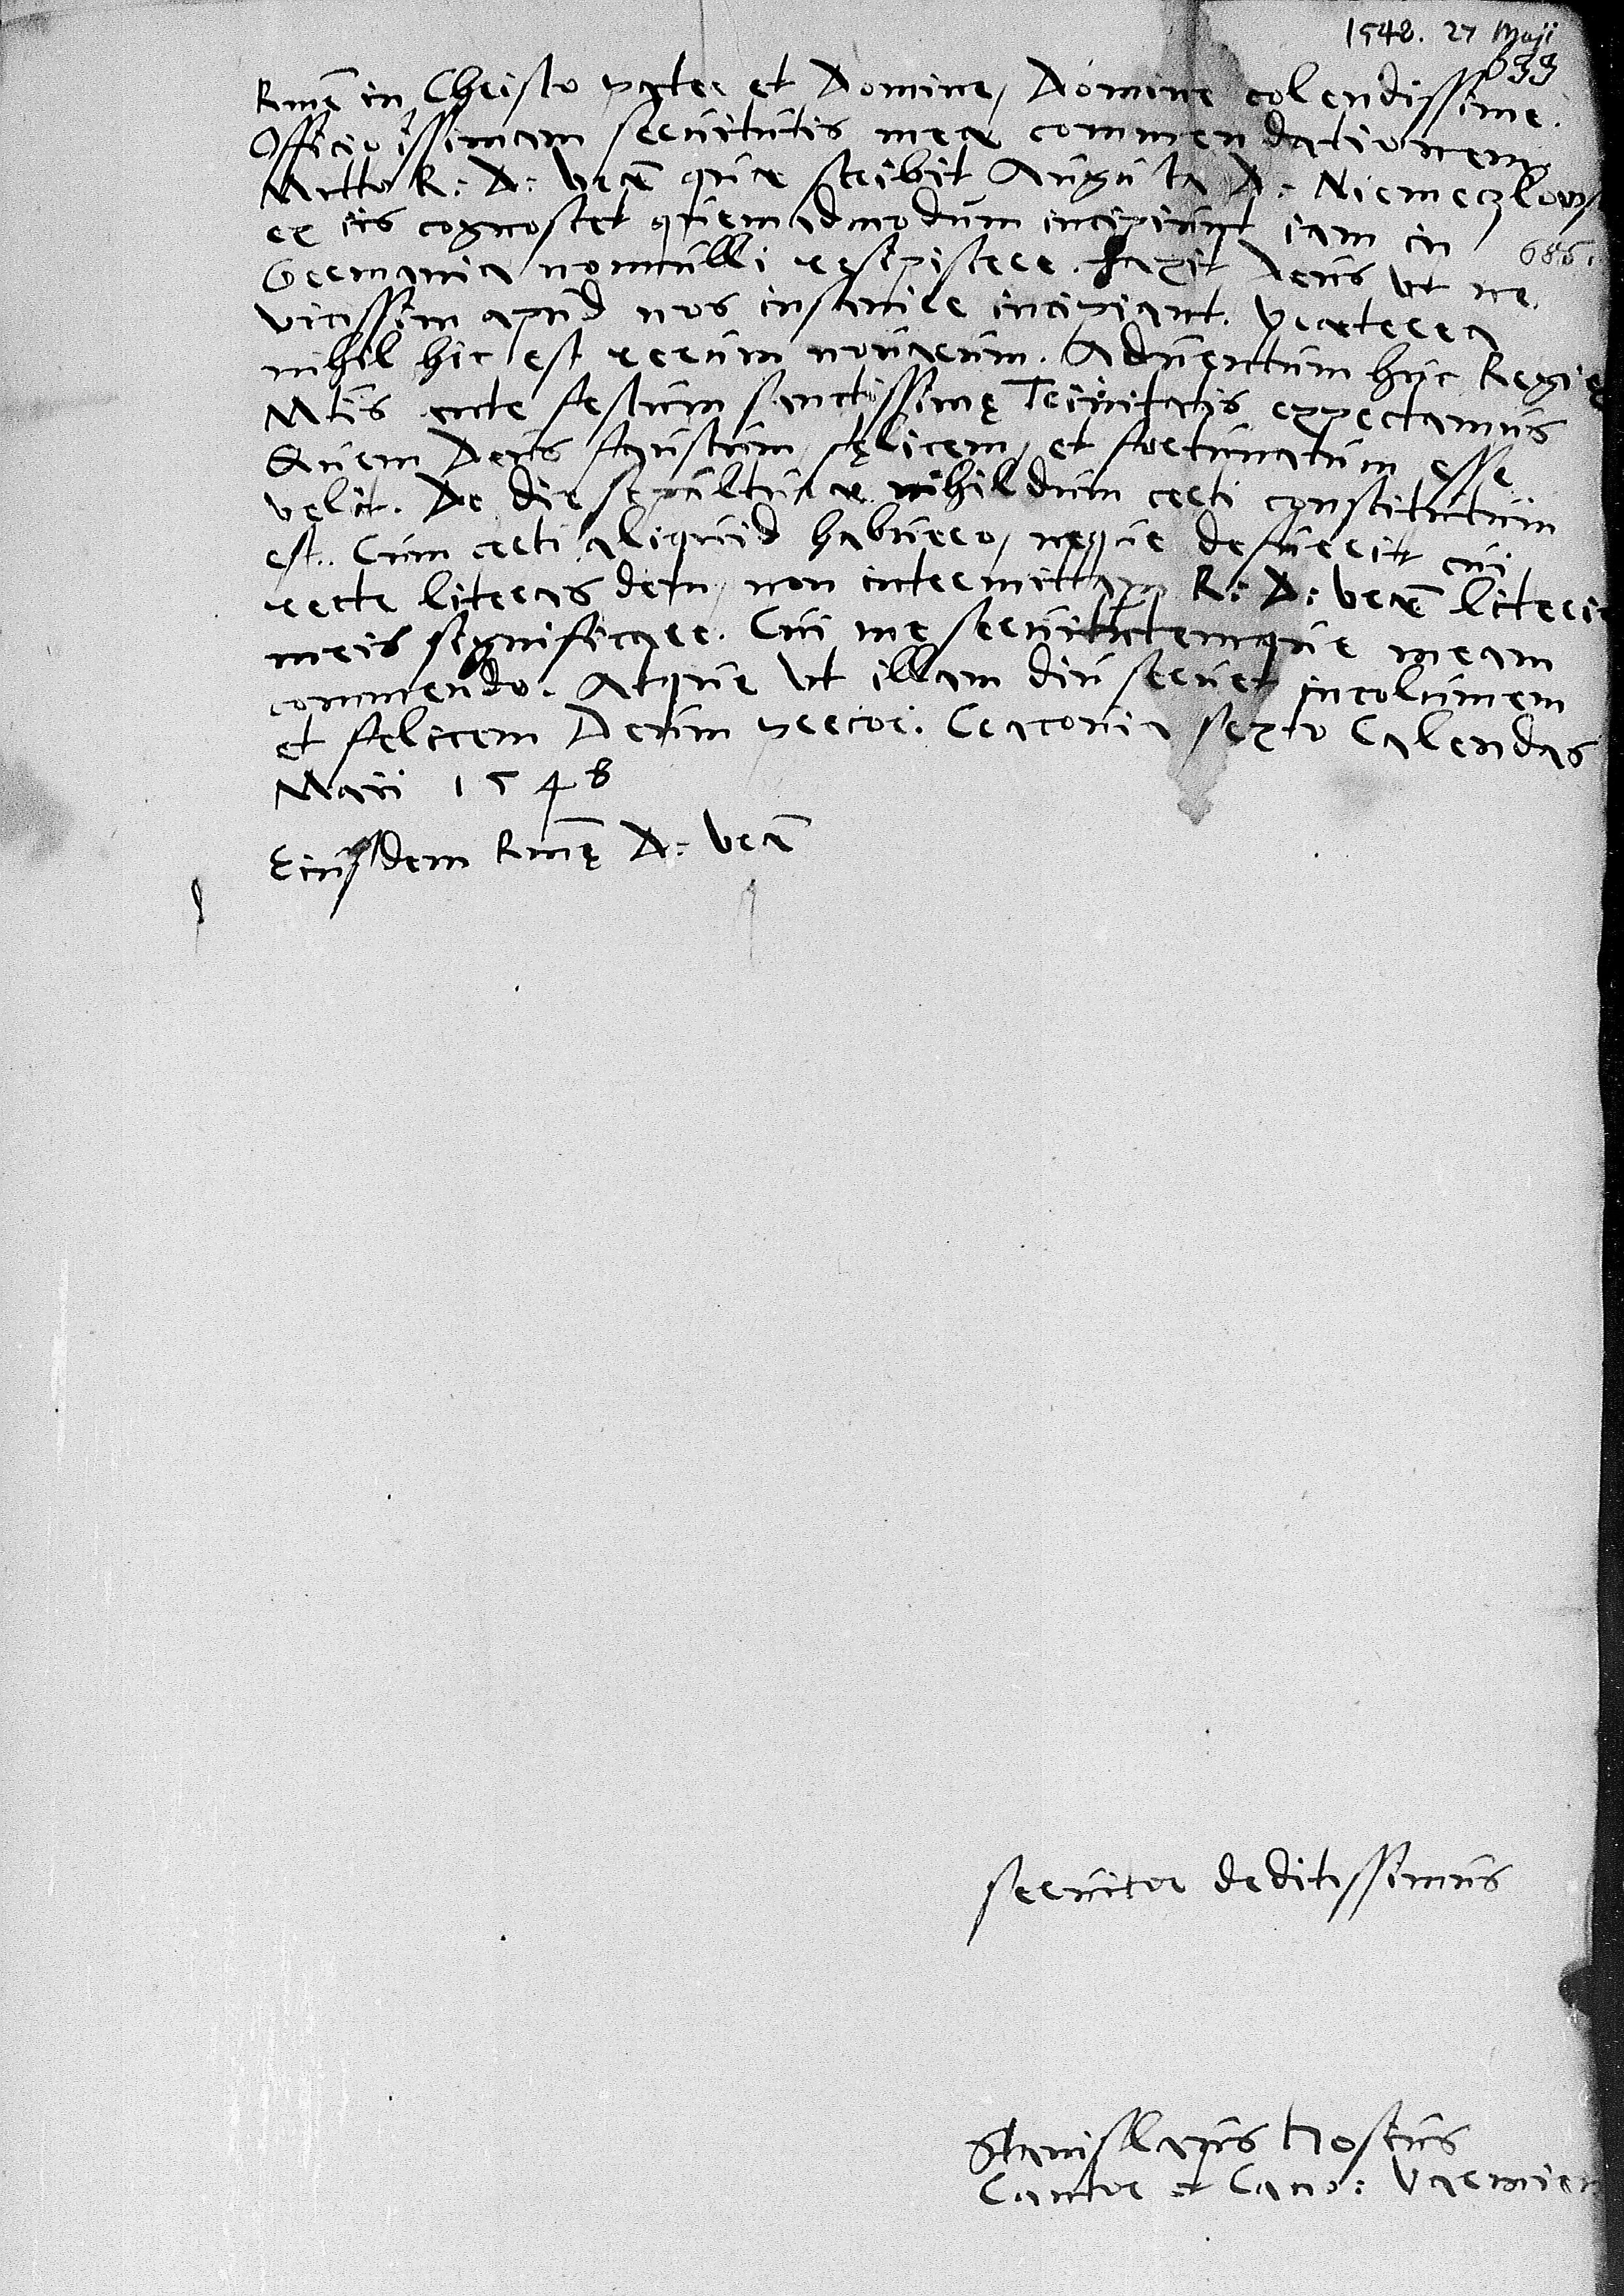 1548. 27 Maji
633
Rmẽ in Christo pater et Domine, Domine colendissime.
Officiosissimam seruitutis meae commendationem
Mitto R: D: Vrãe quae scribit Augusta D: Niemeczkowsk
ex iis cognoscet quemadmodum incipiunt iam in
685.
Germania nonnulli resipiscere. Faxit Deus ut ne
vicissim apud nos insanire incipiant. Praeterea
nihil hic est rerum nouarum. Aduentum huc Regię
Mtis ante festum sanctissimę Trinitatis expectamus
Quem Deus faustum, fęlicem, et fortunatum esse
velit. De die sepulturae nihildum certi constitutum
est. Cum certi aliquid habuero, neque defuerit cui
recte literas dem, non intermittam R: D: Vrãe literis
meis significare. Cui me seruitutemque meam
commendo. Atque ut illam diu seruet incolumem
et felicem Deum precor. Cracouia sexto Calendas
Maii 1548
Eiusdem Rmę D: Vrãe
seruitor deditissimus
Stanislaus Hosius
Cantor et Cano: Varmien